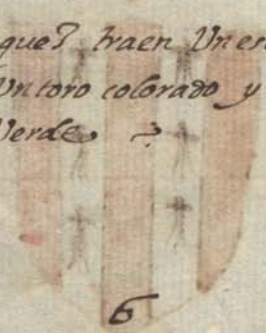 que? traen Un es
Un toro colorado y
Verde ?
6